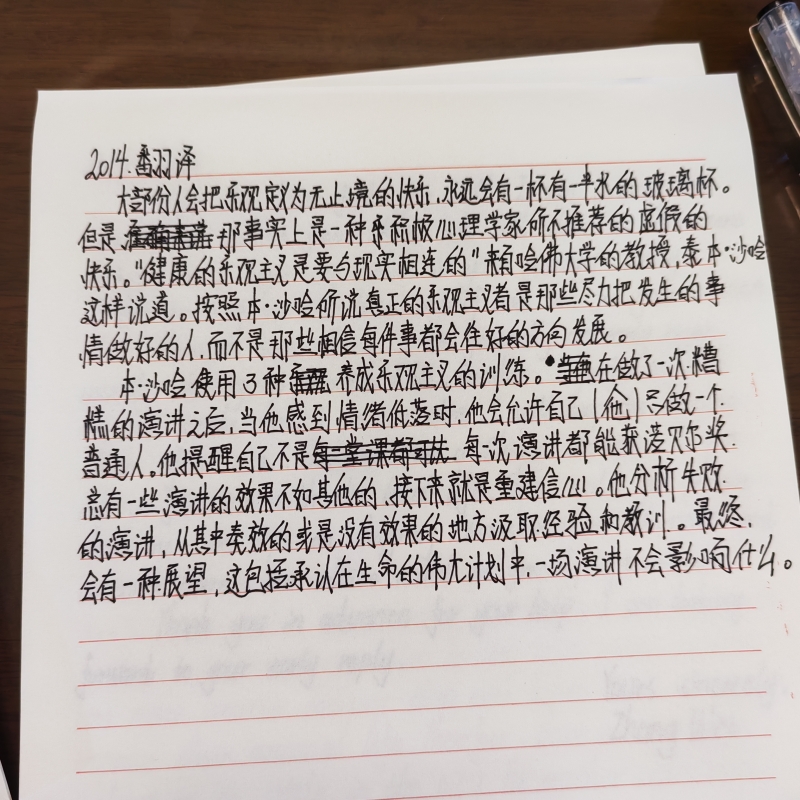 2014.翻译
大部份人会把乐观定义为无止境的快乐,永远会有一杯有一半水的玻璃杯。
但是 那事实上是一种 积极心理学家所不推荐的虚假的
快乐。"健康的乐观主义是要与现实相连的"来自哈佛大学的教授,泰本·沙哈
这样说道。按照本·沙哈所说真正的乐观主义者是那些尽力把发生的事
情做好的人,而不是那些相信每件事都会往好的方向发展。
本·沙哈使用3种 养成乐观主义的训练。 在做了一次糟
糕的演讲之后,当他感到情绪低落时,他会允许自己(他)只做一个
普通人。他提醒自己不是 每一次演讲都能获诺贝尔奖.
总有一些演讲的效果不如其他的,接下来就是重建信心。他分析失败
的演讲,从其中奏效的或是没有效果的地方汲取经验和教训。最终,
会有一种展望,这包括承认在生命的伟大计划中,一场演讲不会影响什么。